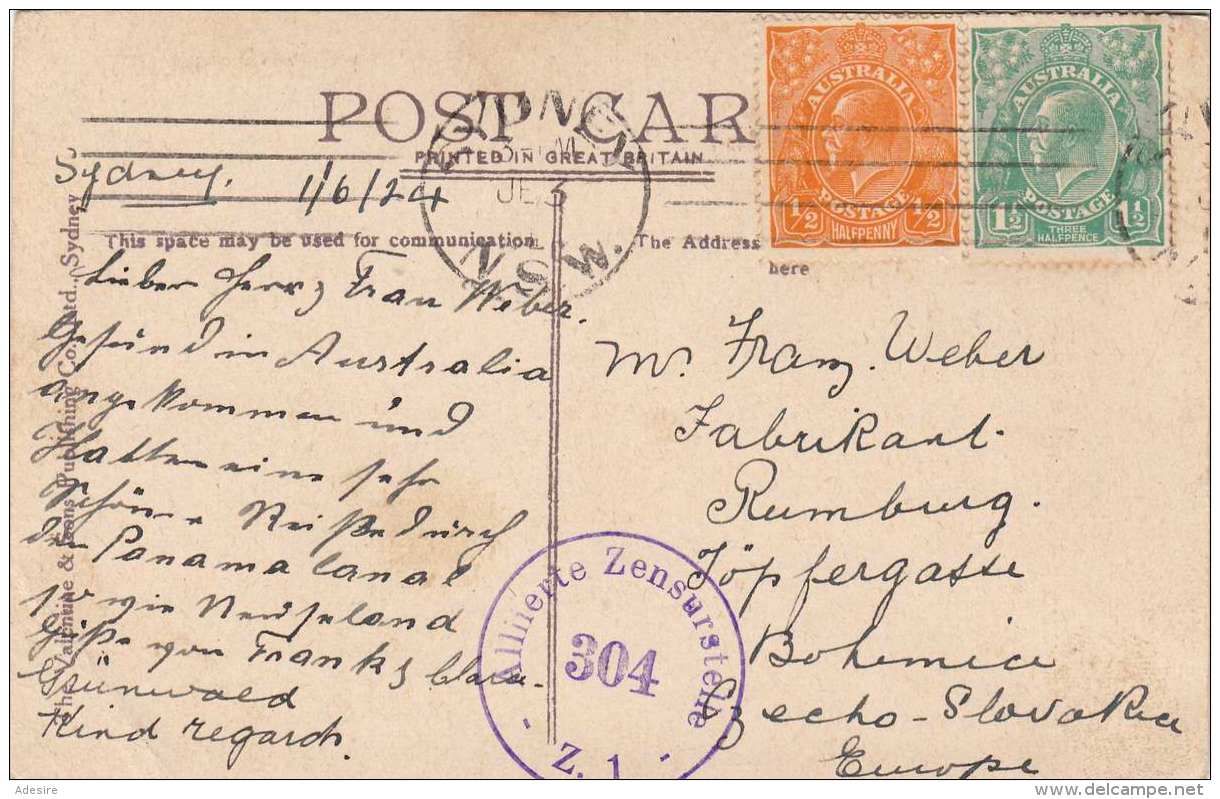 POST CAR
PRINTED IN GREAT BRITAIN
SYDNEY
JE 3
N.S.W.
AUSTRALIA
POSTAGE
½ ½
HALFPENNY
AUSTRALIA
POSTAGE
1½ 1½
THREE
HALFPENCE
Sydney. 1/6/24
This space may be used for communication
The Address
here
Lieber Herr & Frau Weber.
Gesund in Australia
angekommen und
Hatten eine sehr
schöne Reiße durch
den Panama Canal
sowie Neuseeland
Grüße von Frank & Clara
Grünwald
Kind regards.
Mr. Franz. Weber
Fabrikant.
Rumburg.
Töpfergasse
Bohemia
Czecho-Slovakia
Europe
Alliierte Zensurstelle
304
- Z. 1 -
The Valentine & Sons Publishing Co., Ltd., Sydney
Adesire
delcampe.net